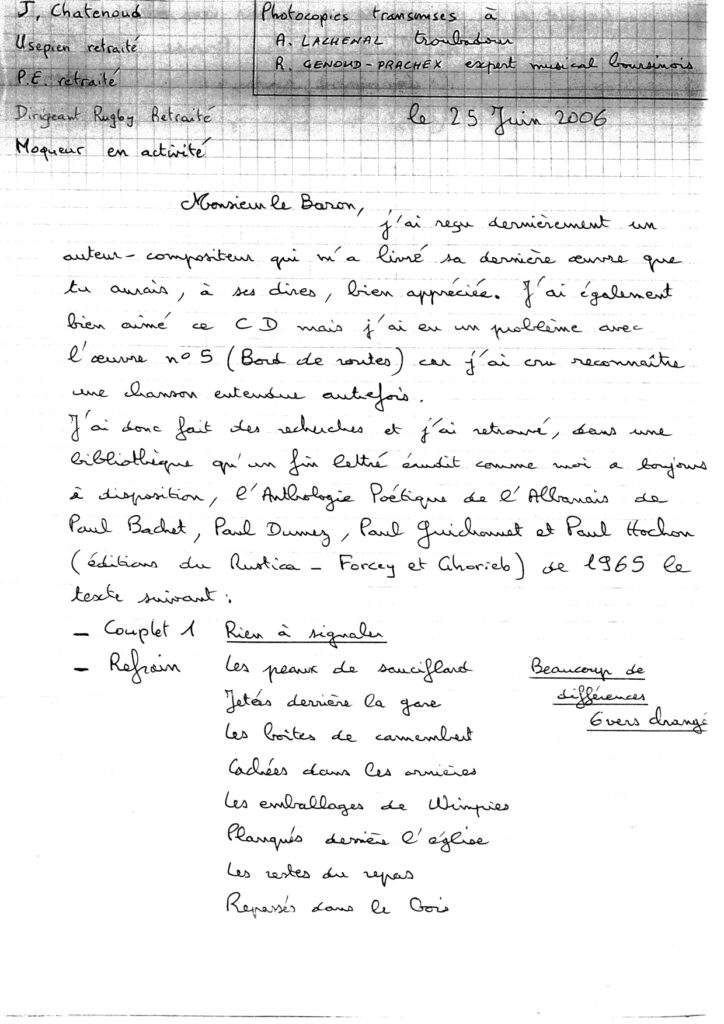 J. Chatenoud
Usepien retraité
P.E. retraité
Dirigeant Rugby Retraité
Moqueur en activité
Photocopies transmises à
A. LACHENAL troubadour
R. GENOUD-PRACHEX expert musical boursinois
le 25 Juin 2006
Monsieur le Baron,
j'ai reçu dernièrement un
auteur-compositeur qui m'a livré sa dernière œuvre que
tu aurais, à ses dires, bien appréciée. J'ai également
bien aimé ce CD mais j'ai eu un problème avec
l'œuvre n°5 (Bord de routes) car j'ai cru reconnaître
une chanson entendue autrefois.
J'ai donc fait des recherches et j'ai retrouvé, dans une
bibliothèque qu'un fin lettré érudit comme moi a toujours
à disposition, l'Anthologie Poétique de l'Albanais de
Paul Bachet, Paul Dumez, Paul Guichonnet et Paul Hochon
(éditions du Rustica - Forcey et Ghorieb) de 1965 le
texte suivant :
- Couplet 1 Rien à signaler
- Refrain Les peaux de sauciflard
Jetés derrière la gare
Les boîtes de camembert
Cachées dans les ornières
Les emballages de Wimpies
Planqués derrière l'église
Les restes du repas
Repassés dans le bois
Beaucoup de
différences
6 vers changé